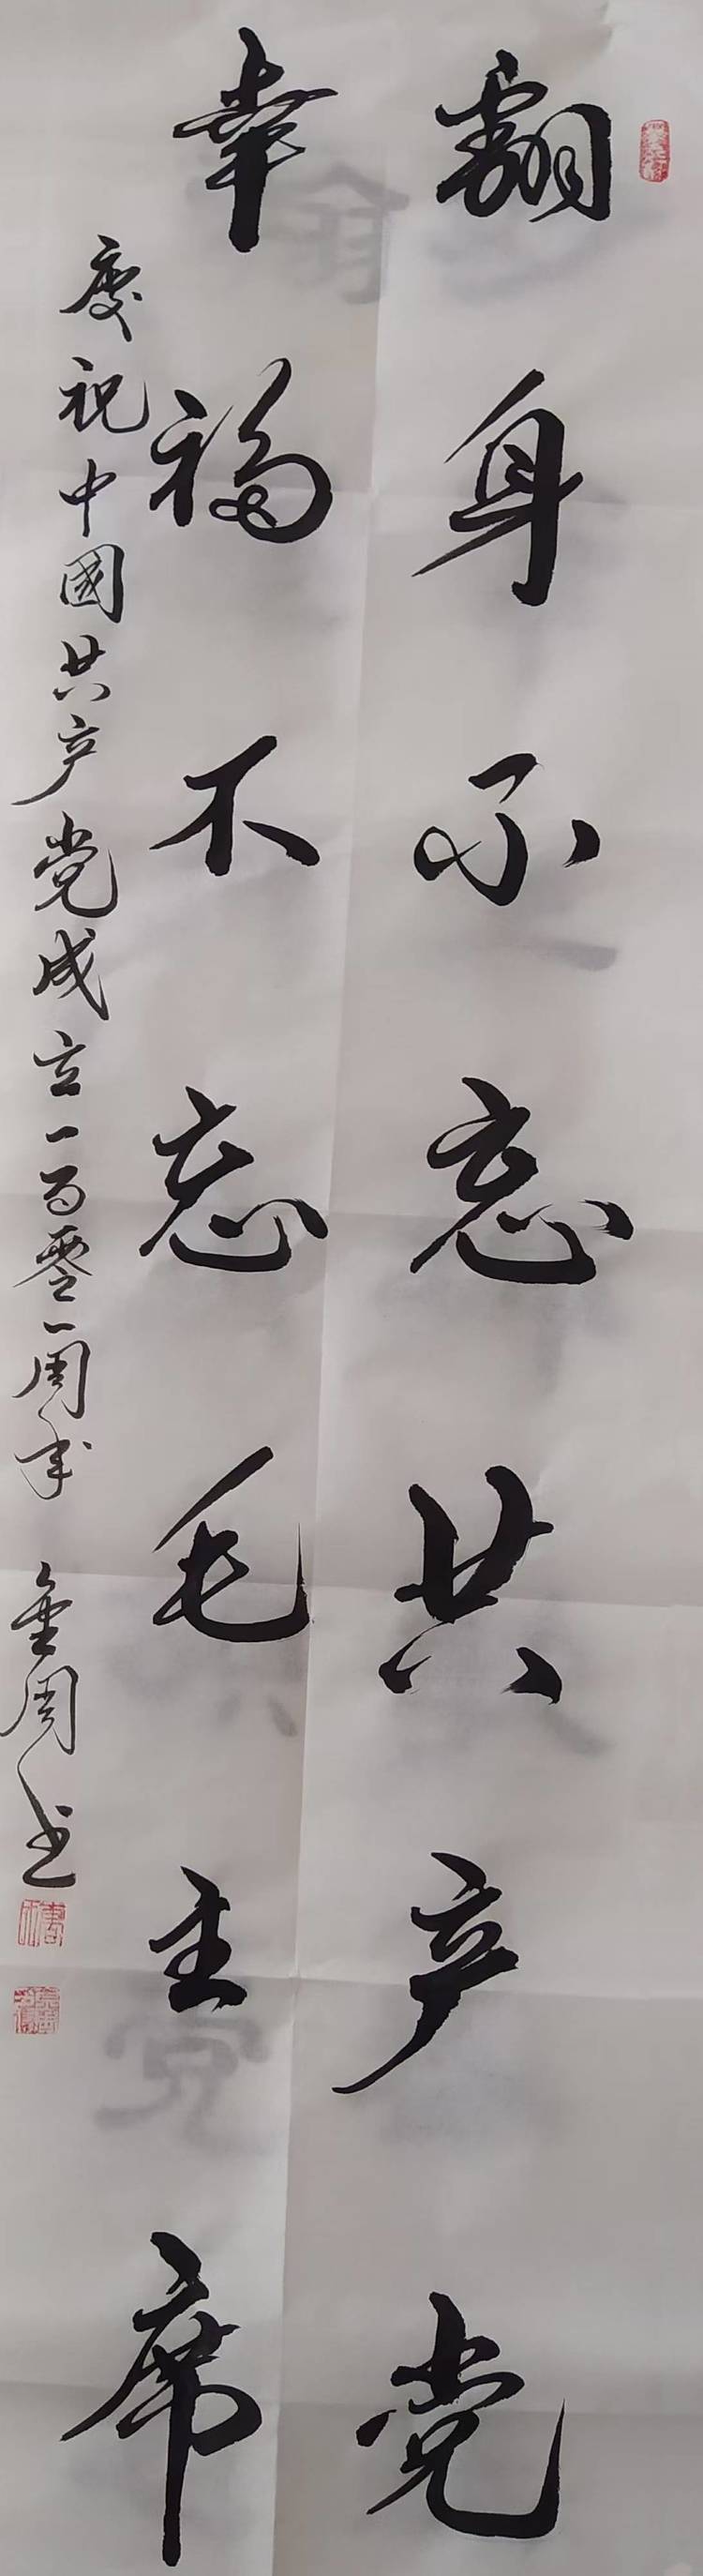 翻身不忘共产党
幸福不忘毛主席
庆祝中國共产党成立一百零一周年 金周书